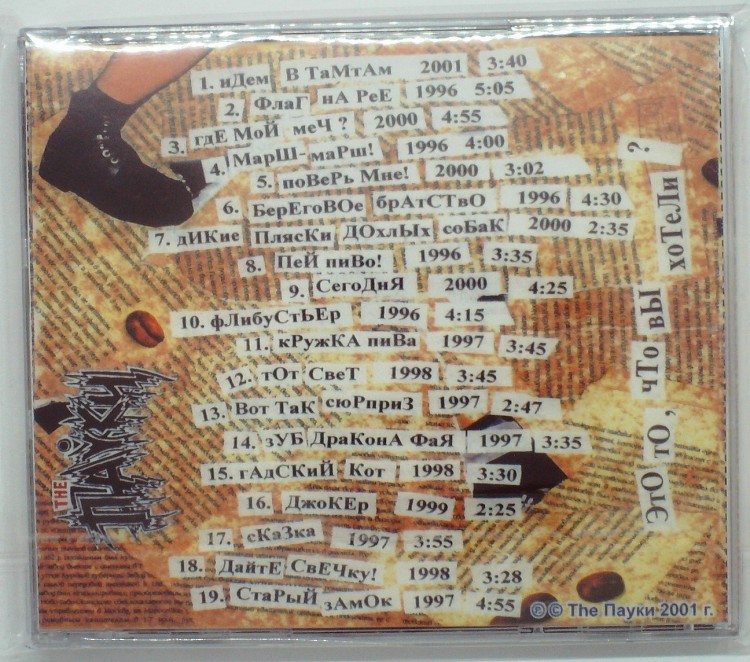 1. иДем В ТаМтАм 2001 3:40
2. ФлаГ нА РеЕ 1996 5:05
3. гдЕ МоЙ меЧ ? 2000 4:55
4. МарШ-маРш! 1996 4:00
5. поВеРь Мне! 2000 3:02
6. БерЕгоВОе брАтСтвО 1996 4:30
7. дИКие ПляСкИ ДОхлЫх соБаК 2000 2:35
8. ПеЙ пиВо! 1996 3:35
9. СегоДнЯ 2000 4:25
10. фЛибуСтЬЕр 1996 4:15
11. кРужКА пиВа 1997 3:45
12. тОт СвеТ 1998 3:45
13. Вот ТаК сюРприЗ 1997 2:47
14. зУБ ДраКонА ФаЯ 1997 3:35
15. гАдСкиЙ Кот 1998 3:30
16. ДжоКЕр 1999 2:25
17. сКаЗка 1997 3:55
18. ДайтЕ СвЕЧку! 1998 3:28
19. СтаРыЙ зАмОк 1997 4:55
ЭтО тО, чТо вЫ хоТеЛи ?
THE ПАУКИ
®© The Пауки 2001 г.